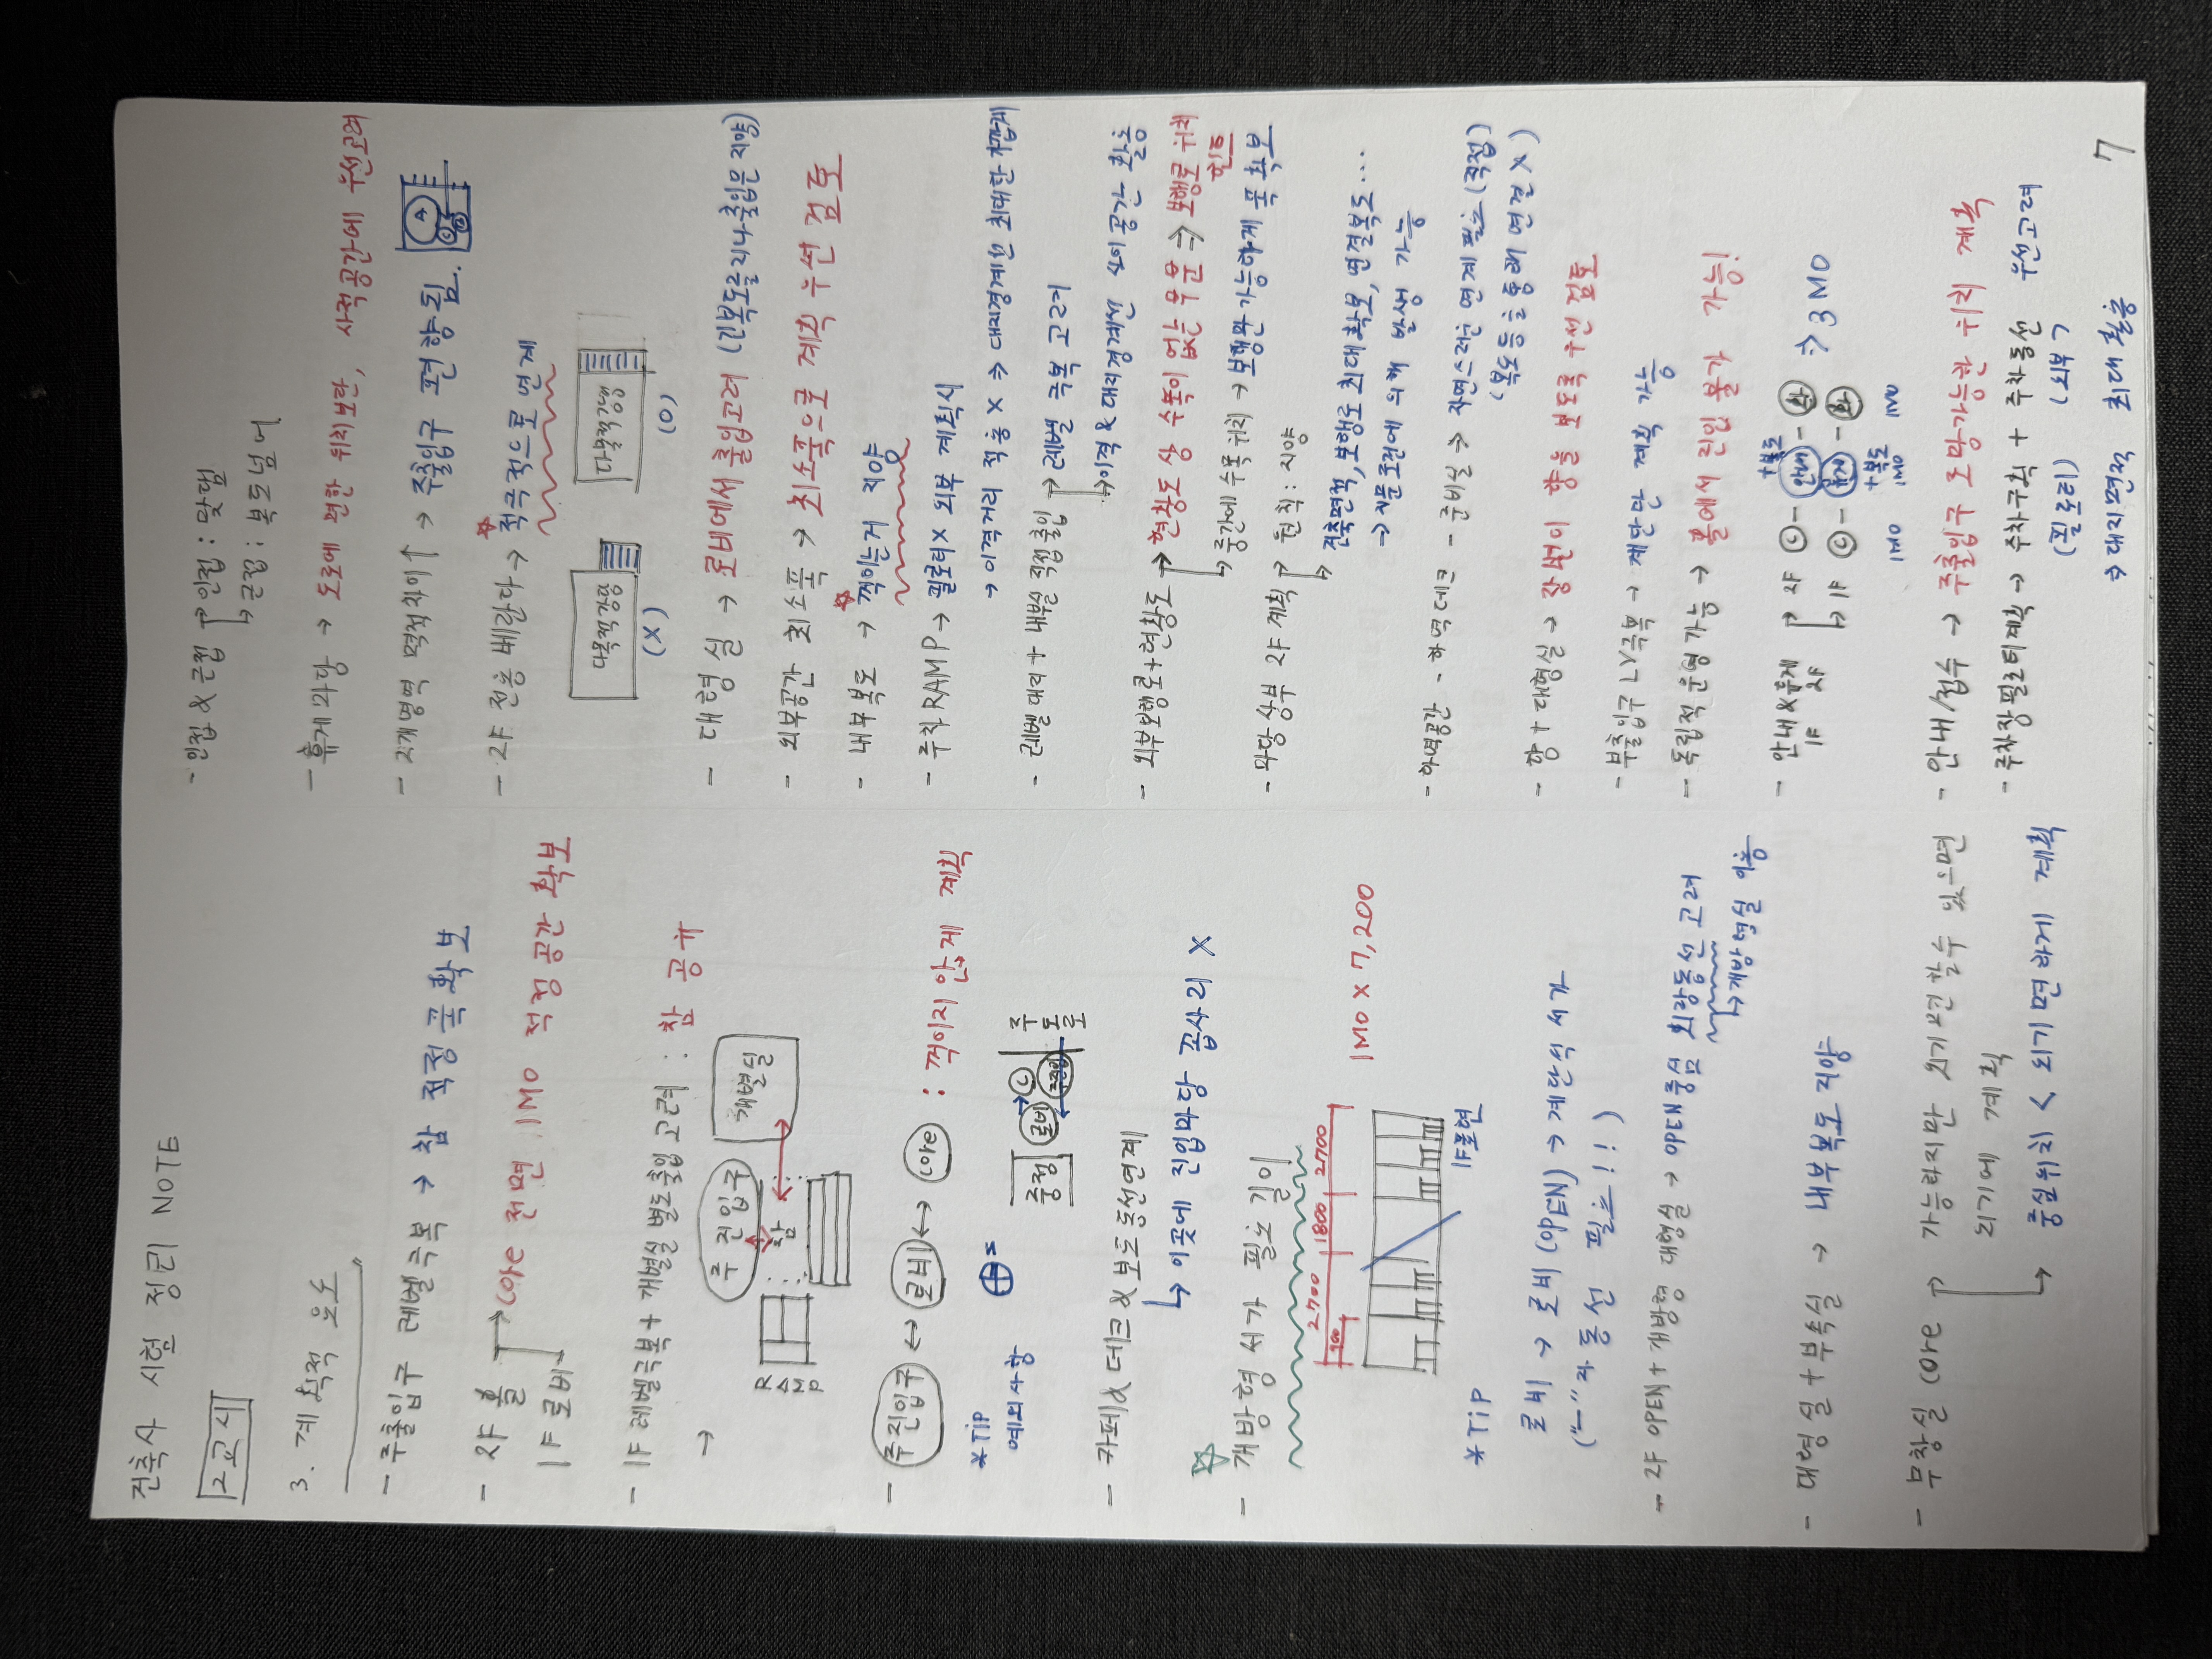 건축사 시험 정리 NOTE
2교시
3. 계획적 요소
- 주출입구 레벨극복 → 참 적정폭확보
- 2F 홀 → core 전면 1MO 적정공간확보
1F 로비
- 1F 레벨극복 + 개별실 별도출입 고려 : 참 공유
→
주진입구
개별실
참
RAMP
- 주진입구 ↔ 로비 ↔ core : 꺽이지 않게 계획
*TIP
예외사항
중정
로비
C
주진입
주도로
- 카페 & 데크 & 보조동선연계
↳ 이곳에 진입마당 끕사리 X
☆
- 개방형 서가 필요 길이
900
2.700
1800
2700
1MO x 7,200
1F표현
*TIP
로비 → 로비(OPEN) → 계단식 서가
("ㅡ"자 동선 필요!!)
- 2F OPEN + 개방형 대형실 → OPEN중심 회랑동선 고려
↳ 개방형실 이용
- 대형실 + 부속실 → 내부복도 지양
- 무창실 core → 가능하지만 외기면할수 있으면
외기에 계획
↳ 중심위치 < 외기면하게 계획
- 인접 & 근접 → 인접 : 맞댐
↳ 근접 : 복도넘어
- 휴게마당 → 도로에 면한 위치보단, 사적공간에 우선고려
- 2개영역 면적차이↑ → 주출입구 편향됨.
A
- 2F 전용 베란다 → 적극적으로 연계
다목적강당
(X)
다목적강당
(O)
- 대형실 → 로비에서 출입고려 (긴복도를지나출입은 지양)
- 외부공간 최소폭 → 최소폭으로 계획 우선 검토
- 내부복도 → 꺽이는거 지양
- 주차RAMP → 필로티X 외부 계획시
→ 이격거리 적용X ⇒ 대지경계선 최대한가깝게
- 레벨 대지 + 내부실 직접출입 → 레벨 극복 고려
↳ 이격 & 대지경계선 사이공간 활용
- 외부보행로+현황도 → 현황도 상 수목이 없는 부분 ⇒ 보행로 위치
힌트
↳ 중간에 수목위치 → 보행환가능하게 폭 확보
- 마당상부 2F 계획 → 원칙 : 지양
↳ 건축면적, 보행로 최대확보, 연결복도...
→ 지문조건에 의해 발생 가능
- 하역공간 - 하역데크 - 준비실 → 자연스러운 연계필요 (직접)
(복도등을통해 연결X)
- 향 + 대형실 → 장변이 향을 보도록 우선 검토
- 부출입구 LV극복 → 계단만 계획 가능
- 독립적 운영가능 → 홀에서 진입 불가 가능!
- 안내&휴게
1F 2F
→ 2F C - 안내 - 화
↳ 1F C - 휴게 - 화
+복도
+복도
⇒ 3MO
1MO 1MO 1MO
- 안내/접수 → 주출입구 조망가능한 위치 계획
- 주차장필로티계획 → 주차구획 + 주차동선 우선고려
(필로티) (외부)
⇒ 대지면적 최대활용
7